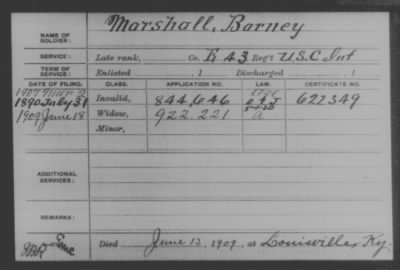 NAME OF SOLDIER: Marshall, Barney
SERVICE: Late rank, Co. 43 Reg't U.S.C. Inf
TERM OF SERVICE: Enlisted , 1 Discharged , 1
DATE OF FILING. CLASS. APPLICATION NO. LAW. CERTIFICATE NO.
1907 Mar
1890 July 31 Invalid, 844,646 627349
1909 June 18 Widow, 922.221 a
Minor,
ADDITIONAL SERVICES:
REMARKS:
Died June 13, 1909, at Louisville, Ky.